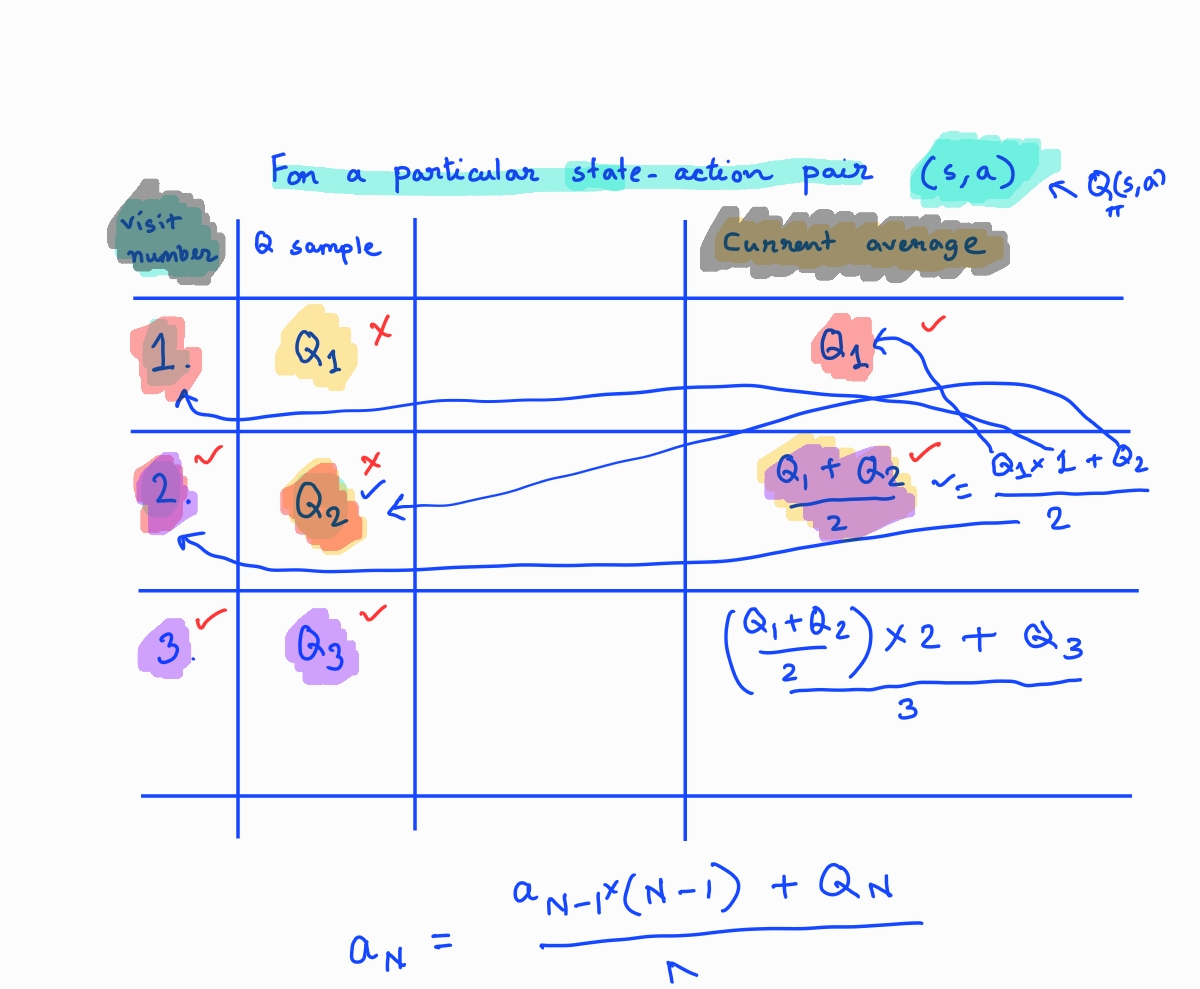 For a particular state-action pair (s,a) ← Q_π(s,a)
visit number | Q sample | | Current average
1. | Q₁ ✗ | | Q₁ ✓
2. ✓ | Q₂ ✗ ✓ | | (Q₁ + Q₂)/2 ✓ ✓ = (Q₁ × 1 + Q₂)/2
3. ✓ | Q₃ ✓ | | (((Q₁+Q₂)/2) × 2 + Q₃)/3
a_N = (a_{N-1} × (N-1) + Q_N)/